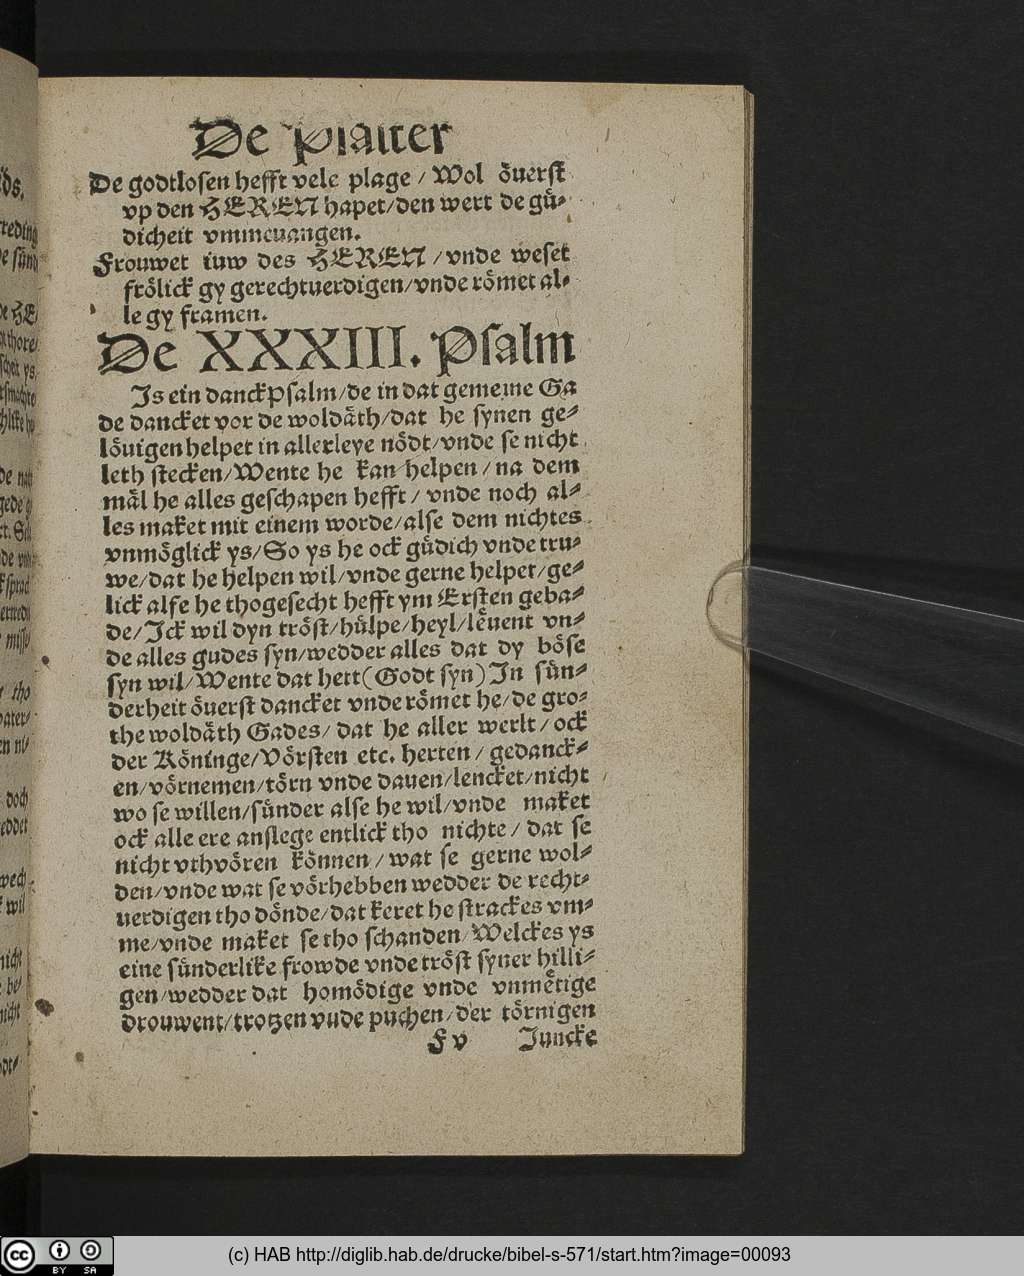 De Psalter
De godtlosen hefft vele plage / Wol öuerst
vp den HEREN hapet/den wert de gü-
dicheit vmmeuangen.
Frouwet iuw des HEREN /vnde weset
frölick gy gerechtuerdigen/vnde römet al-
le gy framen.
De XXXIII. Psalm
Js ein danckPsalm/de in dat gemeine Ga
de dancket vor de woldäth/dat he synen ge-
löuigen helpet in allerleye nödt/vnde se nicht
leth stecken/Wente he kan helpen/na dem
mäl he alles geschapen hefft / vnde noch al-
les maket mit einem worde/alse dem nichtes
vnmöglick ys/So ys he ock güdich vnde tru-
we/dat he helpen wil/vnde gerne helpet/ge-
lick alse he thogesecht hefft ym Ersten geba-
de/Jck wil dyn tröst/hülpe/heyl/leuent vn-
de alles gudes syn/wedder alles dat dy böse
syn wil/Wente dat hett(Godt syn)Jn sün-
derheit öuerst dancket vnde römet he/de gro-
the woldäth Gades/dat he aller werlt/ock
der Köninge/Vörsten etc. herten / gedanck-
en/vörnemen/törn vnde dauen/lencket/nicht
wo se willen/sünder alse he wil/vnde maket
ock alle ere anslege entlick tho nichte/ dat se
nicht vthvören können/wat se gerne wol-
den/vnde wat se vörhebben wedder de recht-
uerdigen tho dönde/dat keret he strackes vm-
me/vnde maket se tho schanden/Welckes ys
eine sünderlike frowde vnde tröst syner hilli-
gen/wedder dat homödige vnde vnmetige
drouwent/trotzen vnde puchen/der törnigen
F v Juncke
(c) HAB http://diglib.hab.de/drucke/bibel-s-571/start.htm?image=00093
cc BY SA